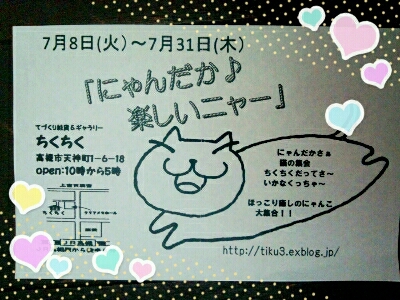 7月8日(火)～7月31日(木)
「にゃんだか♪
楽しいニャー」
てづくり雑貨&ギャラリー
ちくちく
高槻市天神町1-6-18
open:10時から5時
にゃんだかさぁ
猫の集会
ちくちくだってさ～
いかなくっちゃ～
ほっこり癒しのにゃんこ
大集合！！
ちくちく
http://tiku3.exblog.jp/